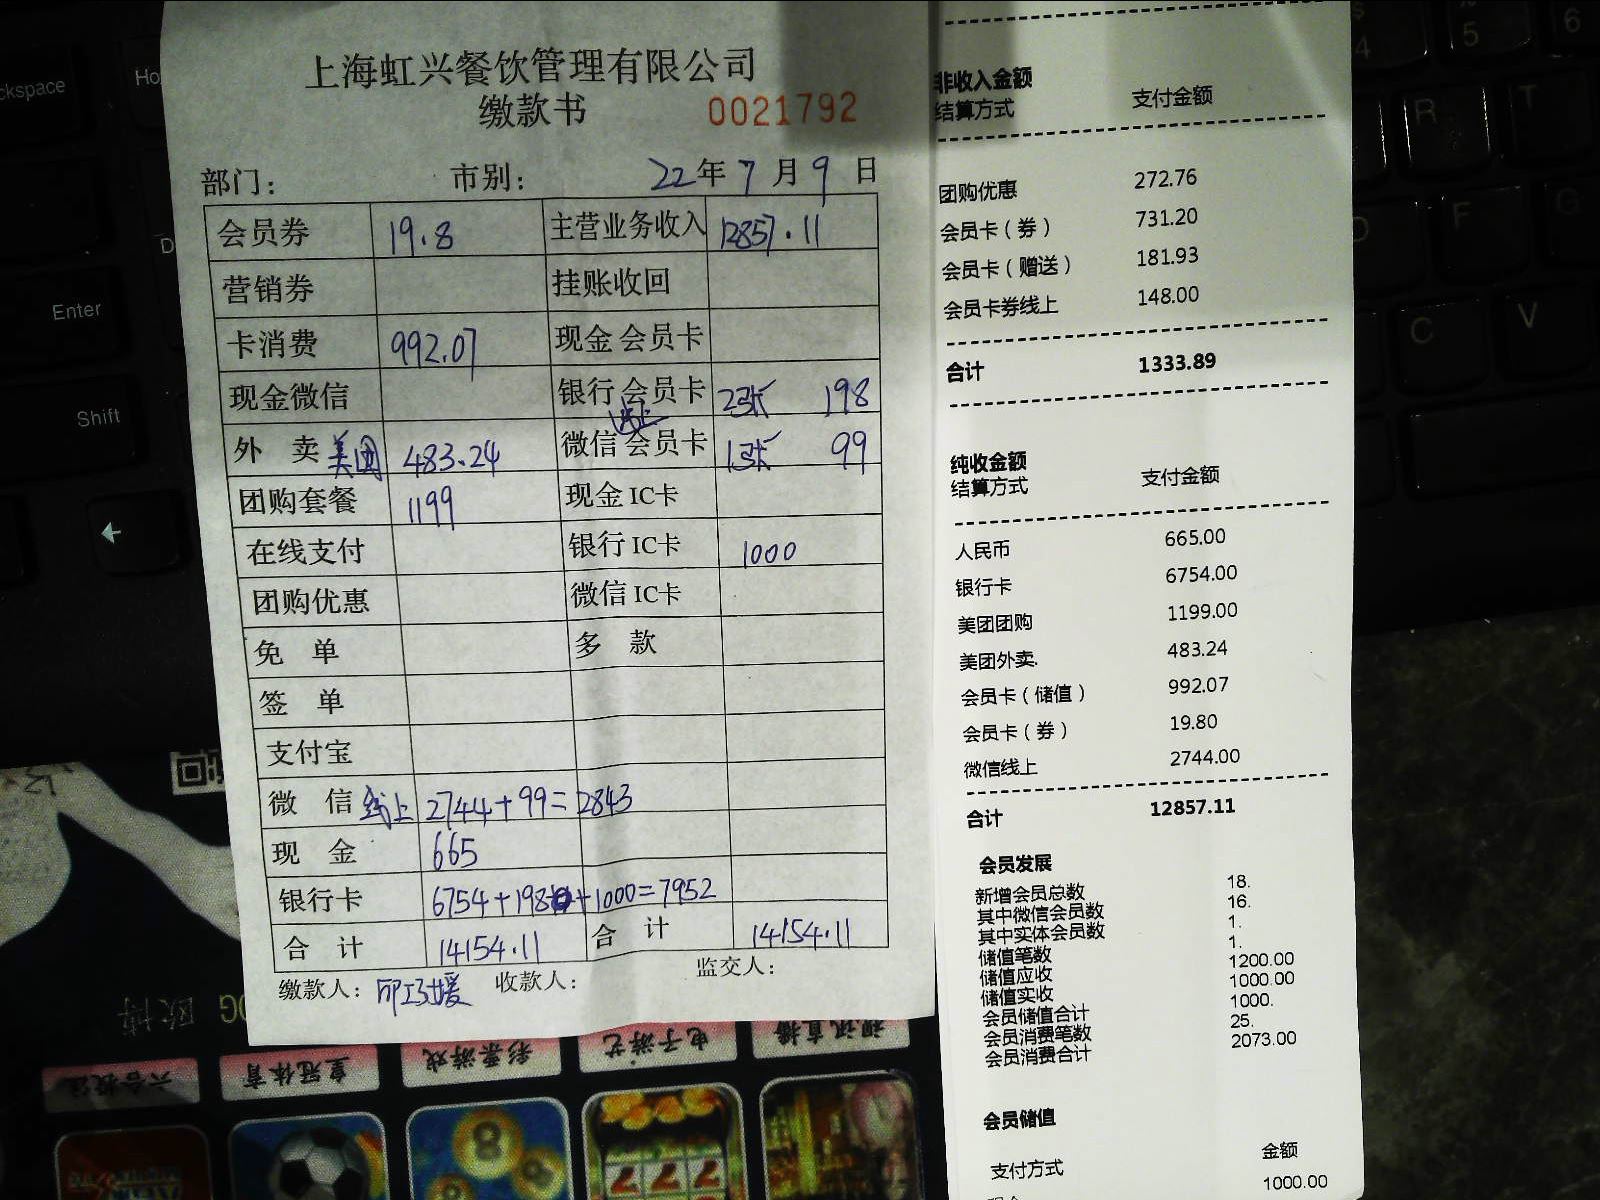 上海虹兴餐饮管理有限公司
缴款书 0021792
部门： 市别： 22年7月9日
会员券 19.8 主营业务收入 12857.11
营销券 挂账收回
卡消费 992.07 现金会员卡
现金微信 银行会员卡 2张 198
外 卖 美团 483.24 微信 线上 会员卡 1张 99
团购套餐 1199 现金IC卡
在线支付 银行IC卡 1000
团购优惠 微信IC卡
免 单 多 款
签 单
支付宝
微 信 线上 2744+99=2843
现 金 665
银行卡 6754+198+1000=7952
合 计 14154.11 合 计 14154.11
缴款人： 收款人： 监交人：
非收入金额
结算方式 支付金额
团购优惠 272.76
会员卡（券） 731.20
会员卡（赠送） 181.93
会员卡券线上 148.00
合计 1333.89
纯收金额
结算方式 支付金额
人民币 665.00
银行卡 6754.00
美团团购 1199.00
美团外卖. 483.24
会员卡（储值） 992.07
会员卡（券） 19.80
微信线上 2744.00
合计 12857.11
会员发展
新增会员总数 18.
其中微信会员数 16.
其中实体会员数 1.
储值笔数 1.
储值应收 1200.00
储值实收 1000.00
会员储值合计 1000.
会员消费笔数 25.
会员消费合计 2073.00
会员储值
支付方式 金额
1000.00
Enter
Shift
R
T
F
G
C
V
4
5
6
欧博
六合投注
皇冠体育
彩票游戏
电子游艺
视讯直播
8
7 7 7